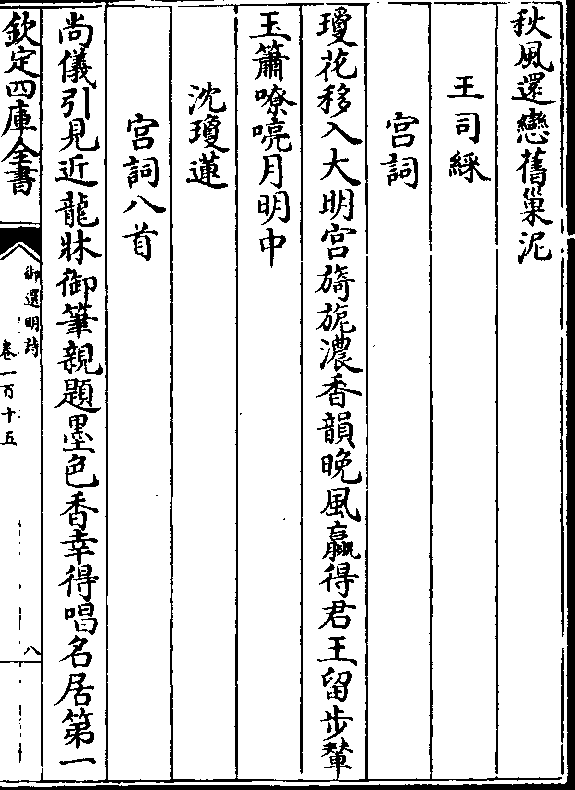 秋風還戀舊巢泥
王司綵
宮詞
瓊花移入大明宮旖旎濃香韻晚風贏得君王留步輦
玉簫嘹喨月明中
沈瓊蓮
宮詞八首
尚儀引見近龍牀御筆親題墨色香幸得唱名居第一
欽定四庫全書
御選明詩
卷一百十五
八